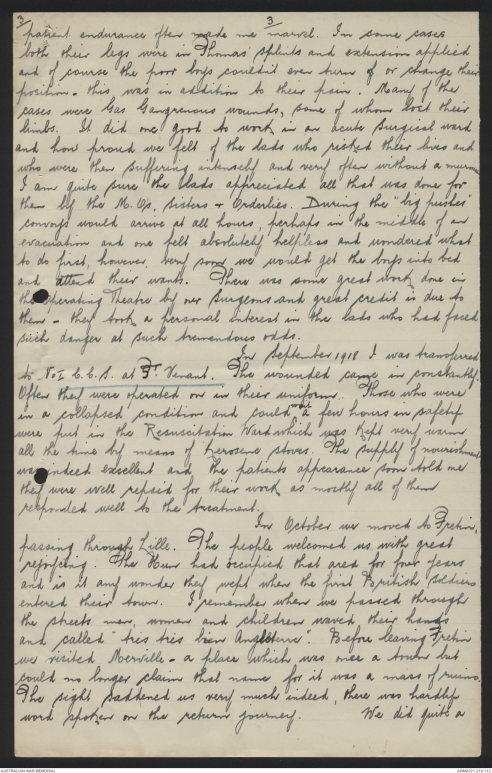 3 3
patient endurance often made me marvel. In some cases
both their legs were in Thomas splints and extension applied
and of course the poor boys couldn't even turn or change their
position - this was in addition to their pain. Many of the
cases were Gas Gangrenous wounds, some of whom lost their
limbs. It did one good to work in an acute surgical ward
and how proud we felt of the lads who risked their lives and
who were then suffering intensely and very often without a murmur
I am quite sure the lads appreciated all that was done for
them by the M.Os. Sisters + Orderlies. During the "big pushes"
convoys would arrive at all hours, perhaps in the middle of an
evacuation and one felt absolutely helpless and wondered what
to do first, however, very soon we would get the boys into bed
and attend their wants. There was some great work done in
the Operating Theatre by our Surgeons and great credit is due to
them - they took a personal interest in the lads who had faced
such danger at such tremendous odds.
In September 1918 I was transferred
to No 1 C.C.S. at St. Venant. The wounded came in constantly.
Often they were operated on in their uniform. Those who were
in a collapsed condition and could wait a few hours in safety
were put in the Resuscitation Ward which was kept very warm
all the time by means of kerosene stoves. The supply of nourishment
was indeed excellent and the patients appearance soon told me
they were well repaid for their work as mostly all of them
responded well to the treatment.
In October we moved to Fretin,
passing through Lille. The people welcomed us with great
rejoicing. The Hun had occupied that area for four years
and is it any wonder they wept when the first British soldiers
entered their town. I remember when we passed through
the streets men, women and children waved their hands
and called "très très bien Angleterre". Before leaving Fretin
we visited Merville - a place which was once a town but
could no longer claim that name for it was a mass of ruins.
The sight saddened us very much indeed, there was hardly
word spoken on the return journey. We did quite a
AUSTRALIAN WAR MEMORIAL